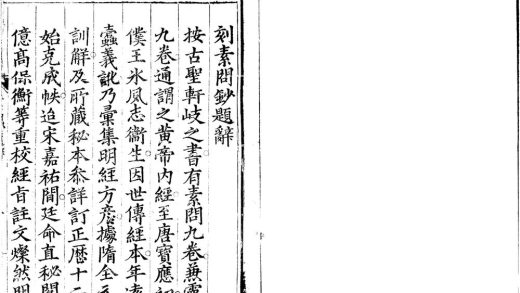 刻素問鈔題辭
按古聖軒岐之書有素問九卷兼靈
九卷通謂之黄帝内經至唐寶應
僕王氷夙志衞生因世傳經本年
蠹義訛乃彙集明經方彦據隋全
訓解及所藏秘本叅詳訂正歴十二
始克成帙迨宋嘉祐間廷命直秘閣
億高保衡等重校經旨註文燦然明